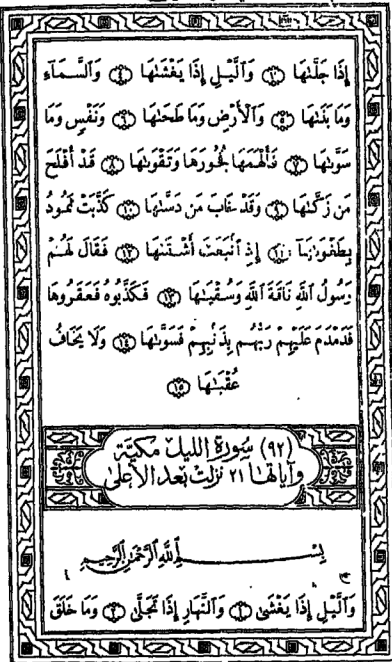 إِذَا جَلَّىٰهَا ۝٣ وَٱلَّيْلِ إِذَا يَغْشَىٰهَا ۝٤ وَٱلسَّمَآءِ
وَمَا بَنَىٰهَا ۝٥ وَٱلْأَرْضِ وَمَا طَحَىٰهَا ۝٦ وَنَفْسٍ وَمَا
سَوَّىٰهَا ۝٧ فَأَلْهَمَهَا فُجُورَهَا وَتَقْوَىٰهَا ۝٨ قَدْ أَفْلَحَ
مَن زَكَّىٰهَا ۝٩ وَقَدْ خَابَ مَن دَسَّىٰهَا ۝١٠ كَذَّبَتْ ثَمُودُ
بِطَغْوَىٰهَآ ۝١١ إِذِ ٱنۢبَعَثَ أَشْقَىٰهَا ۝١٢ فَقَالَ لَهُمْ
رَسُولُ ٱللَّهِ نَاقَةَ ٱللَّهِ وَسُقْيَىٰهَا ۝١٣ فَكَذَّبُوهُ فَعَقَرُوهَا
فَدَمْدَمَ عَلَيْهِمْ رَبُّهُم بِذَنۢبِهِمْ فَسَوَّىٰهَا ۝١٤ وَلَا يَخَافُ
عُقْبَىٰهَا ۝١٥
(٩٢) سُورَة الليل مَكيّة
وآياتها ٢١ نزلت بَعد الأعلى
بِسْمِ ٱللَّهِ ٱلرَّحْمَٰنِ ٱلرَّحِيمِ
وَٱلَّيْلِ إِذَا يَغْشَىٰ ۝١ وَٱلنَّهَارِ إِذَا تَجَلَّىٰ ۝٢ وَمَا خَلَقَ